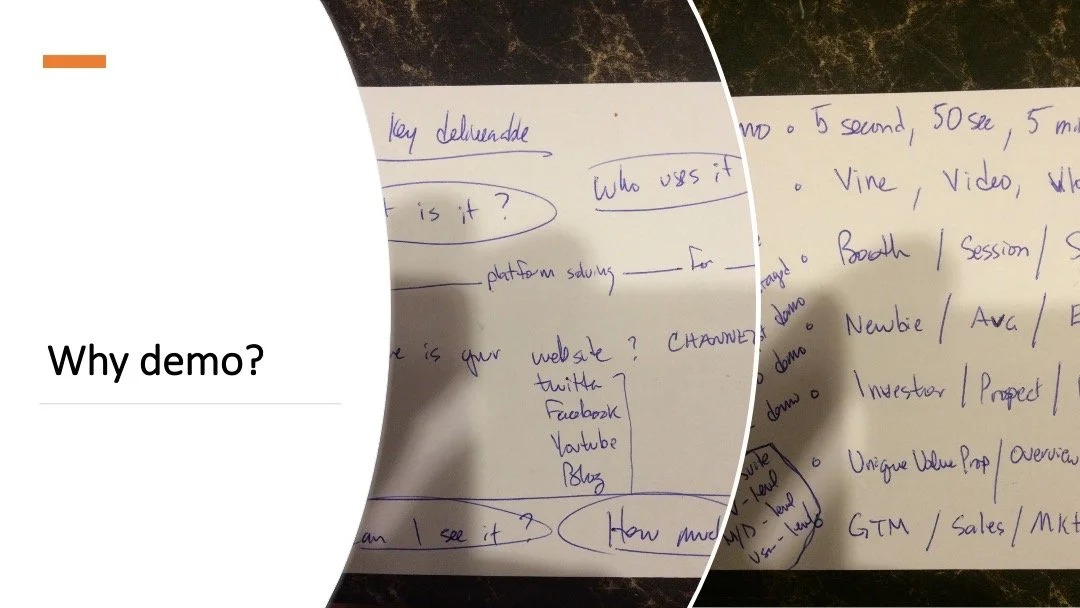 Why demo?
key deliverable
Who uses it
t is it ?
platform solving ___ for ___
e is your website ? CHANNE
twitter
Facebook
Youtube
Blog
an I see it ?
How muc
mo • 5 second, 50 sec, 5 mi
• Vine, Video,
• Booth / Session / S
demo • Newbie / Avg / E
demo
demo • Investor / Propect /
• Unique Value Prop / Overview
suite
V - level
M/D - level
usr - level
GTM / Sales / Mkt